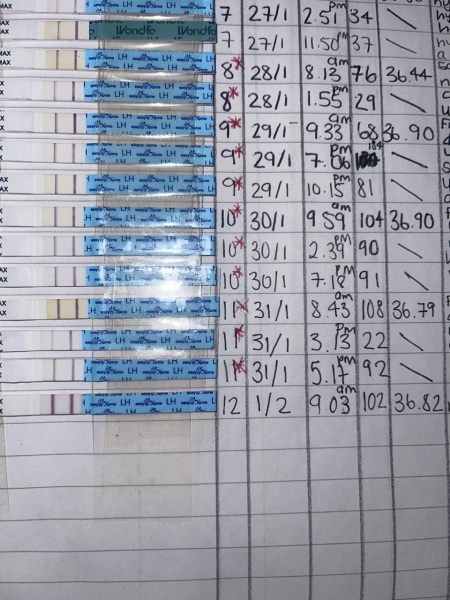 7 27/1 2.51 pm 34 \
Wondfo Wondfo 7 27/1 11.50 pm 37 \
LH LH LH 8* 28/1 8.13 am 76 36.44
LH LH LH 8* 28/1 1.55 pm 29 \
LH LH LH 9* 29/1 9.33 am 68 36.90
LH LH LH 9* 29/1 7.06 pm 184 \
LH LH LH 9* 29/1 10.15 pm 81 \
LH LH LH 10* 30/1 9.59 am 104 36.90
LH LH LH 10* 30/1 2.39 pm 90 \
LH LH LH 10* 30/1 7.18 pm 91 \
LH LH LH 11* 31/1 8.43 am 108 36.79
LH LH LH 11* 31/1 3.13 pm 22 \
LH LH LH 11* 31/1 5.17 pm 92 \
LH LH LH 12 1/2 9.03 am 102 36.82